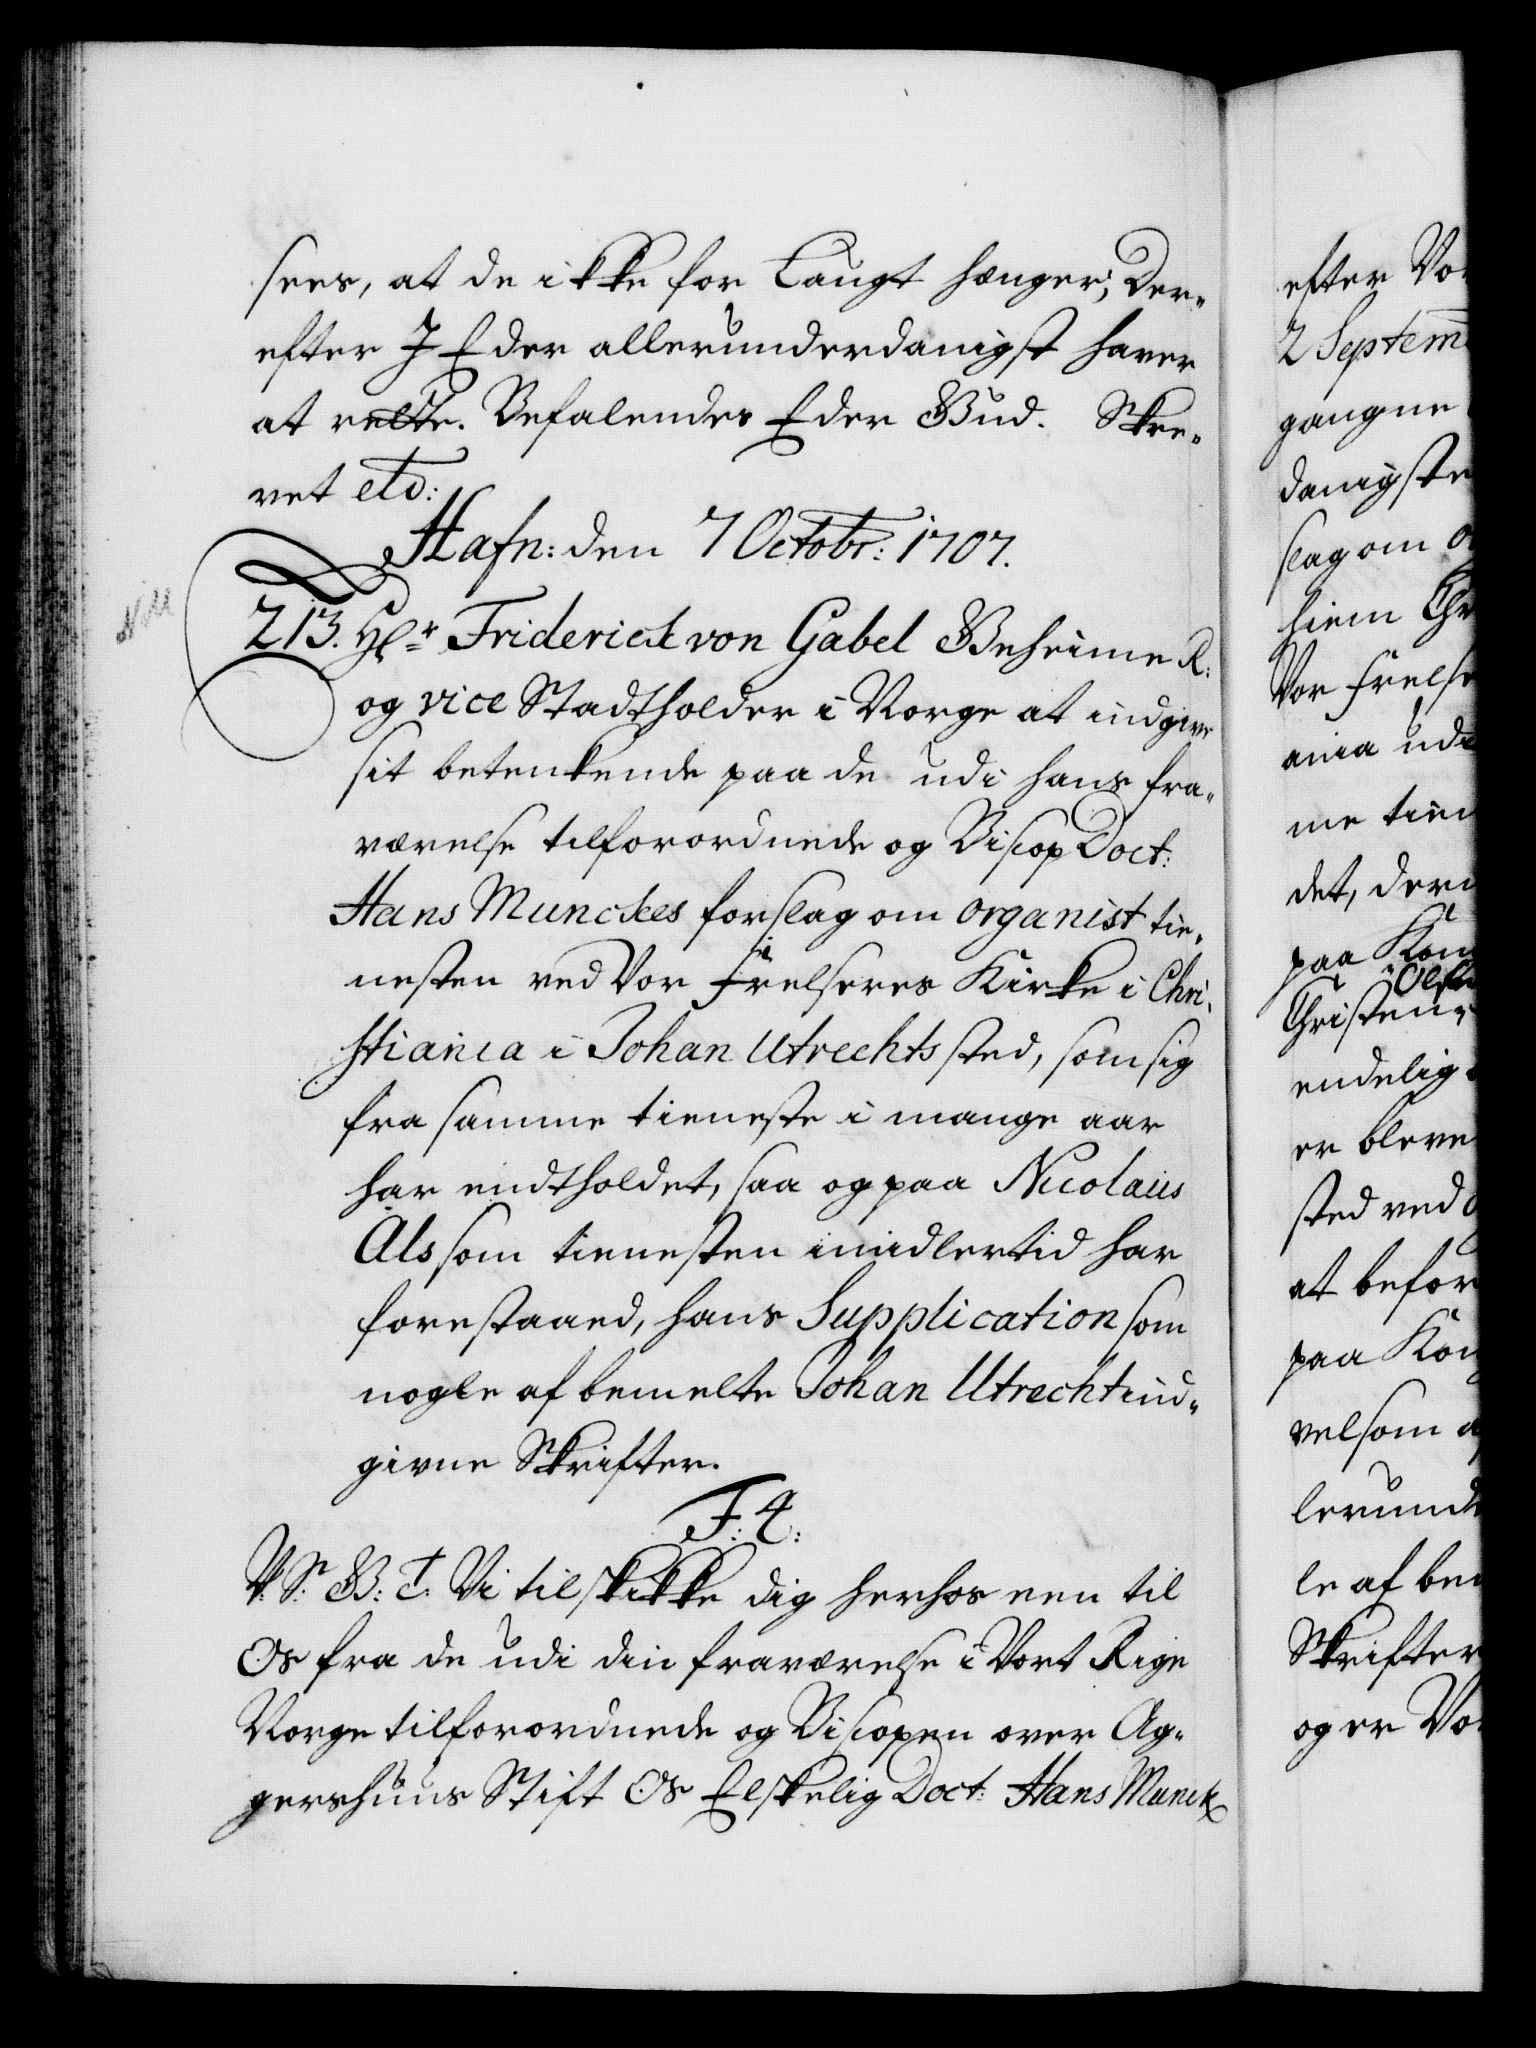 sees, at de ikke for Langt hænger; Der-
efter I Eder allerunderdanigst haver
at rette. Befalendes Eder Gud. Skre-
vet etc:
Hafn: den 7 Octobr: 1707.
213. Hr Friderich von Gabel Geheime R:
og vice Stadtholder i Norge at indgive
sit betenkende paa de udi hans fra-
værelse tilforordnede og Biscop Doct:
Hans Munckes forslag om organist tie-
nesten ved Vor Frelseres Kirke i Chri-
stiania i Johan Utrechts sted, som sig
fra samme tieneste i mange aar
har endtholdet, saa og paa Nicolaus
Als som tienesten imidlertid har
forestaaed, hans Supplication som
nogle af bemelte Johan Utrecht ind-
givne Skrifter.
F: 4:
V: S: G: T: Vi tilskikke dig herhos een til
Os fra de udi din fraværelse i Vort Rige
Norge tilforordnede og Biscopen over Ag-
gershuus Stift Os Elskelig Doct: Hans Munck
efter Vo
2 Septem
gangne
danigste
slag om o
hiem Chr
Vor Frelse
ania udi
me tien
det, der
paa Kon
Christen
endelig
er bleve
sted ved
at befor
paa Kon
velsom a
lerund
le af be
Skrifter
og er Vo